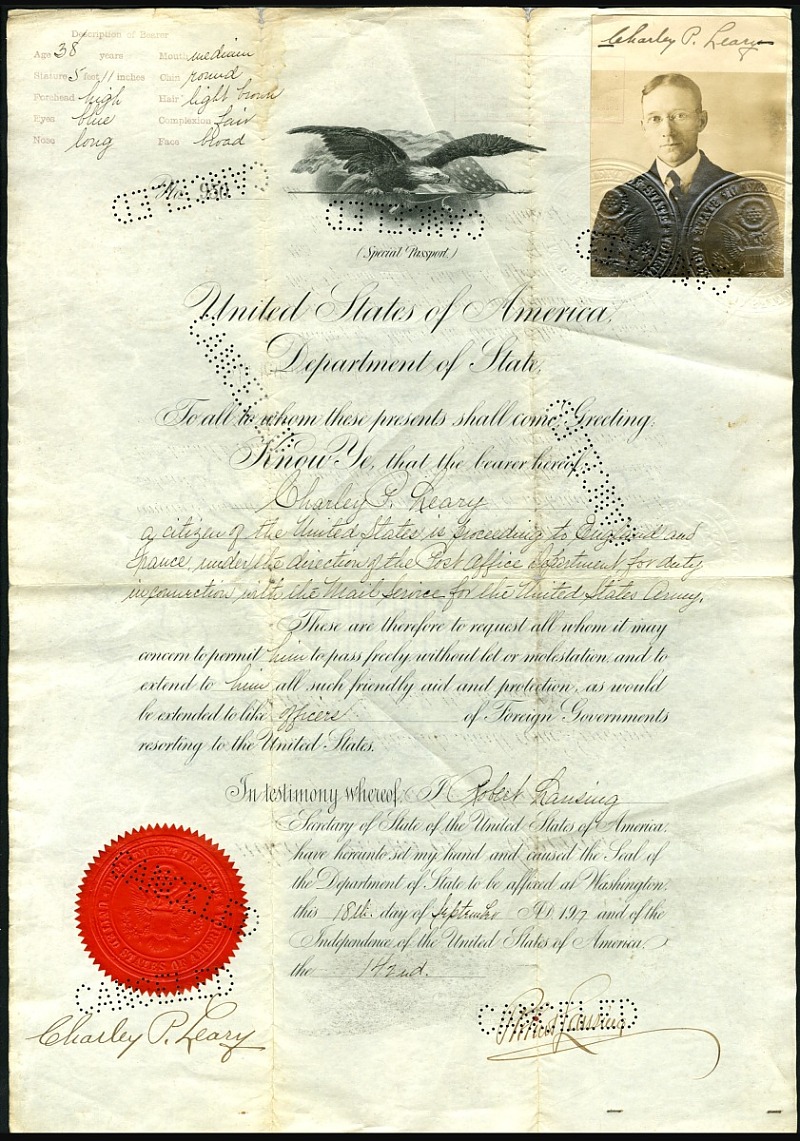 Description of Bearer
Age 38 years Mouth medium
Stature 5 feet 11 inches Chin round
Forehead high Hair light brown
Eyes blue Complexion fair
Nose long Face broad
No.
CANCELED
CANCELED
CANCELED
Charley P. Leary
(Special Passport.)
United States of America,
Department of State,
To all to whom these presents shall come Greeting:
Know Ye, that the bearer hereof,
Charley P. Leary
a citizen of the United States is proceeding to England and
France, under the direction of the Post Office Department for duty
in connection with the Mail Service for the United States Army.
These are therefore to request all whom it may
concern to permit him to pass freely, without let or molestation, and to
extend to him all such friendly aid and protection, as would
be extended to like officers of Foreign Governments
resorting to the United States.
In testimony whereof, I Robert Lansing
Secretary of State of the United States of America,
have hereunto set my hand and caused the Seal of
the Department of State to be affixed at Washington,
this 18th day of September A.D. 1917 and of the
Independence of the United States of America,
the 142nd.
CANCELED
CANCELED
Charley P. Leary
Robert Lansing
CANCELED